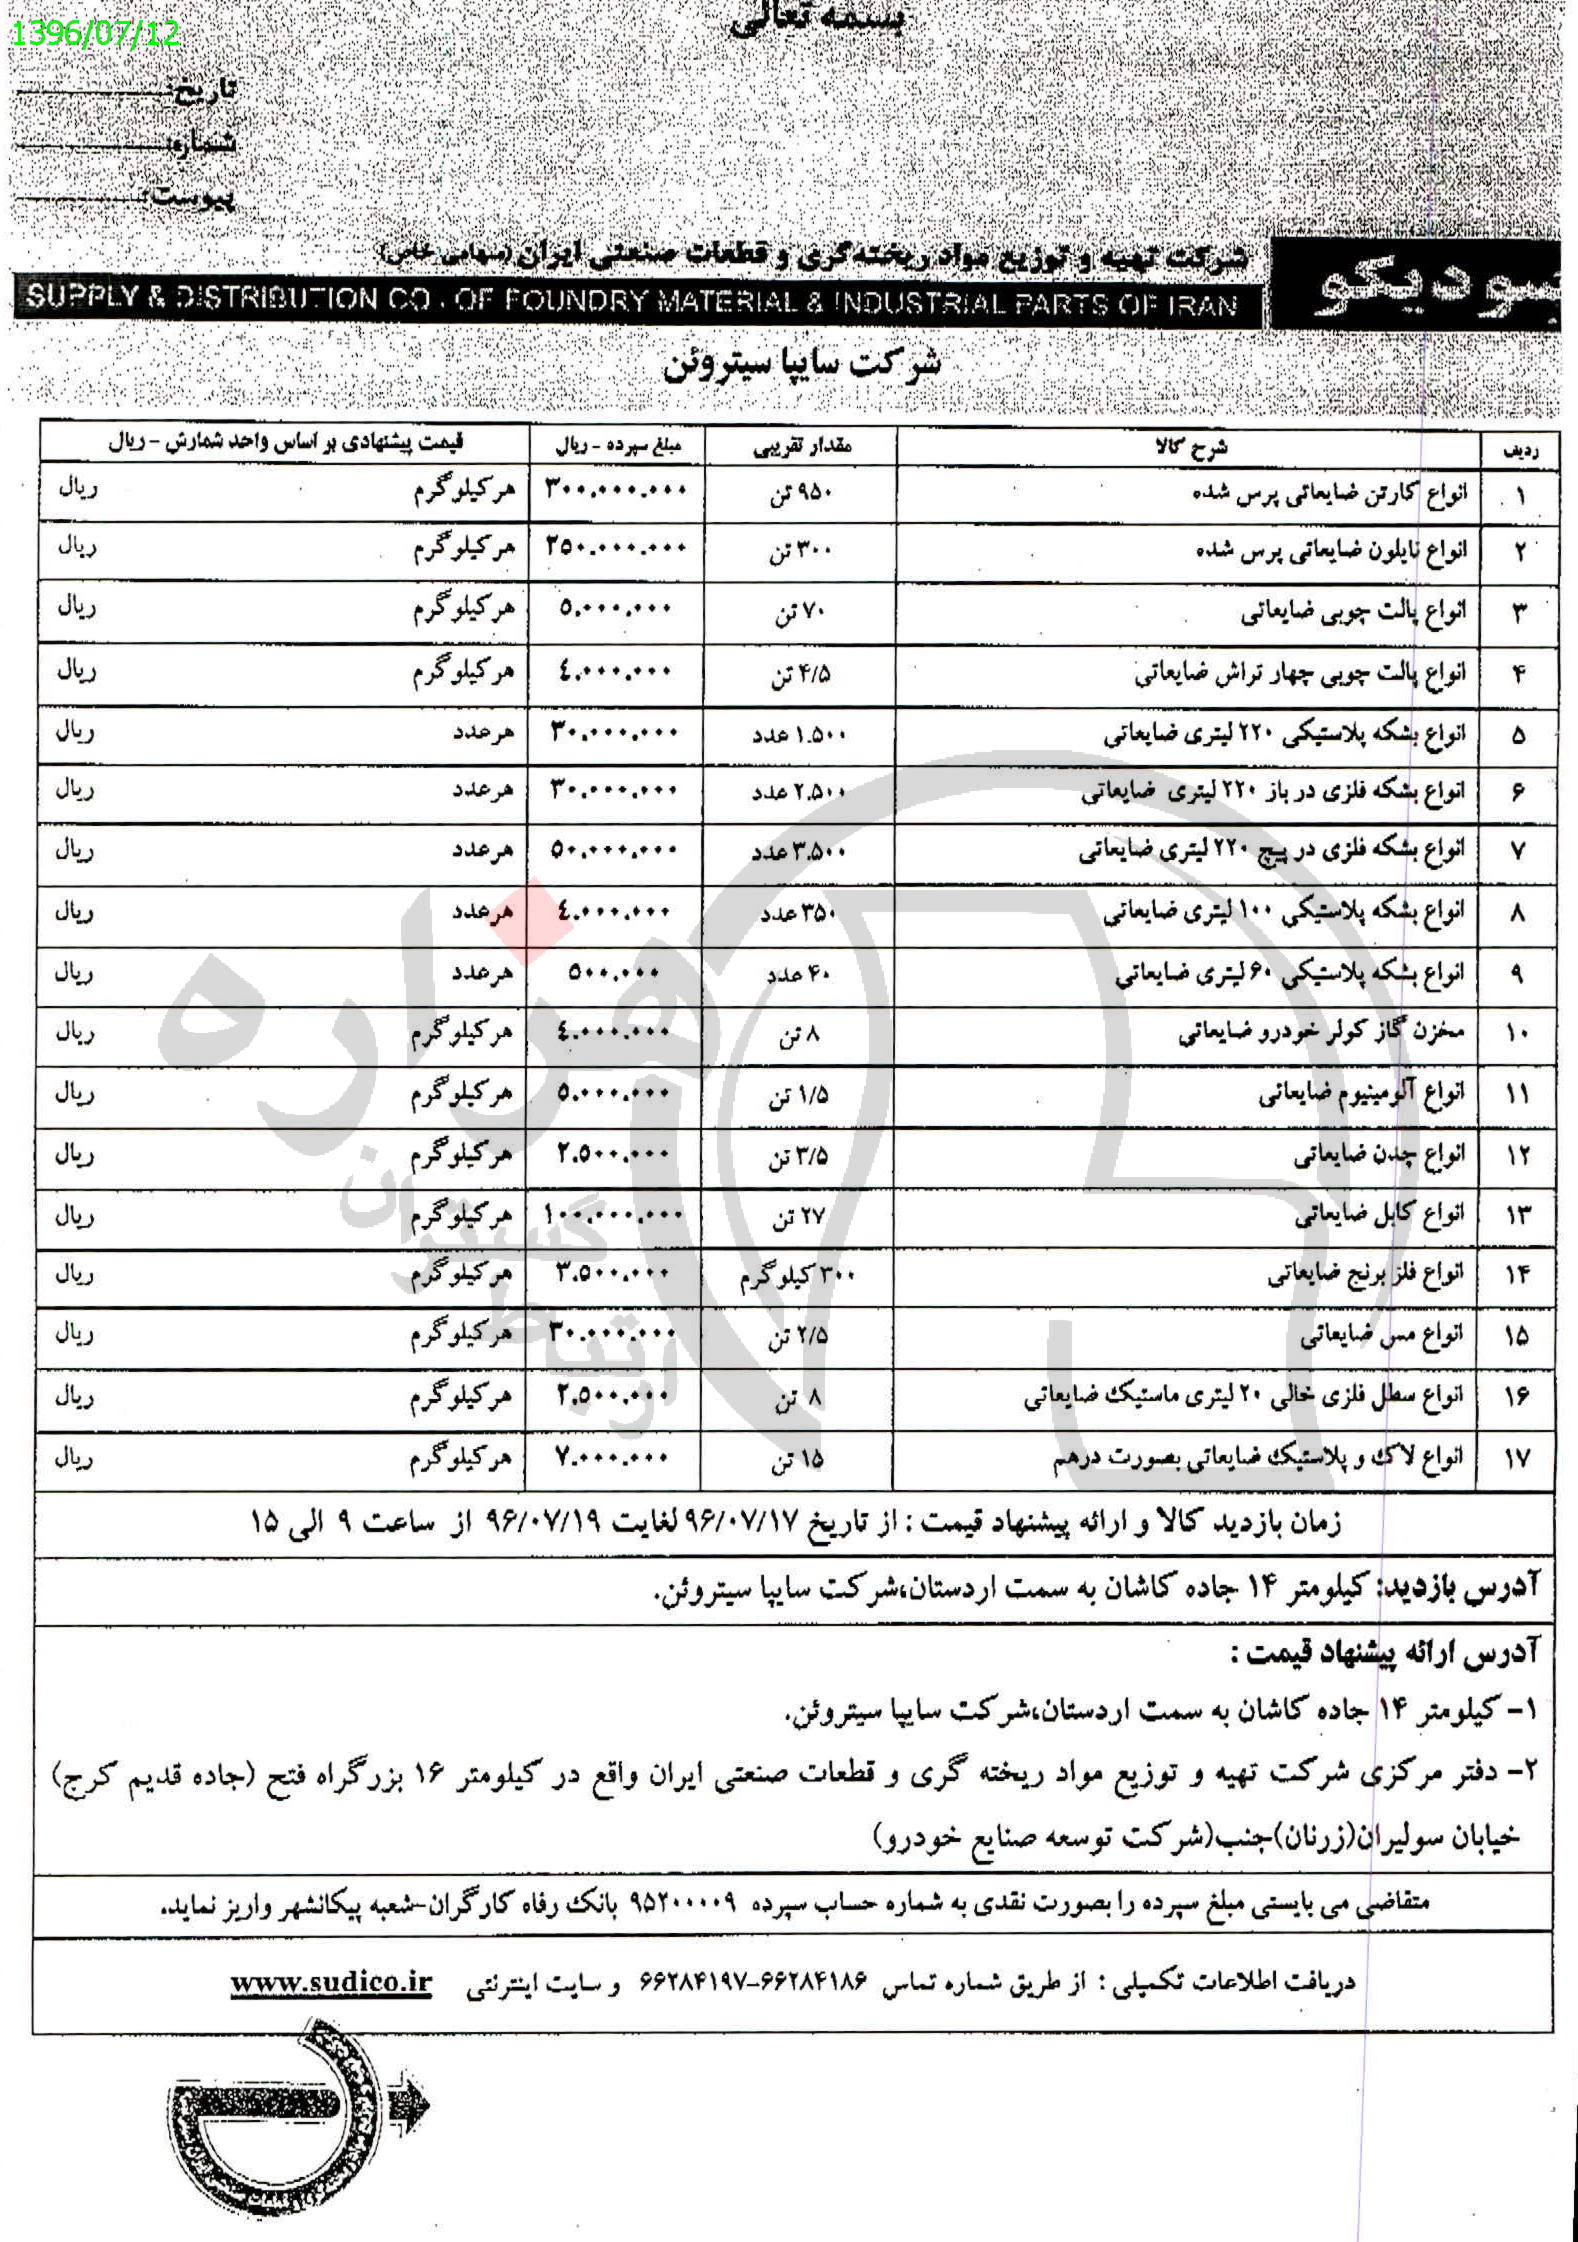 1396/07/12
بسمه تعالی
تاریخ:
شماره:
پیوست:
شرکت تهیه و توزیع مواد ریخته‌گری و قطعات صنعتی ایران (سهامی خاص)
SUPPLY & DISTRIBUTION CO. OF FOUNDRY MATERIAL & INDUSTRIAL PARTS OF IRAN
شرکت سایپا سیتروئن
ردیف شرح کالا مقدار تقریبی مبلغ سپرده - ریال قیمت پیشنهادی بر اساس واحد شمارش - ریال
۱ انواع کارتن ضایعاتی پرس شده ۹۵۰ تن ۳۰۰.۰۰۰.۰۰۰ هرکیلوگرم ریال
۲ انواع نایلون ضایعاتی پرس شده ۳۰۰ تن ۲۵۰.۰۰۰.۰۰۰ هرکیلوگرم ریال
۳ انواع پالت چوبی ضایعاتی ۷۰ تن ۵.۰۰۰.۰۰۰ هرکیلوگرم ریال
۴ انواع پالت چوبی چهار تراش ضایعاتی ۴/۵ تن ٤.۰۰۰.۰۰۰ هرکیلوگرم ریال
۵ انواع بشکه پلاستیکی ۲۲۰ لیتری ضایعاتی ۱.۵۰۰ عدد ۳۰.۰۰۰.۰۰۰ هرعدد ریال
۶ انواع بشکه فلزی در باز ۲۲۰ لیتری ضایعاتی ۲.۵۰۰ عدد ۳۰.۰۰۰.۰۰۰ هرعدد ریال
۷ انواع بشکه فلزی در پیچ ۲۲۰ لیتری ضایعاتی ۳.۵۰۰ عدد ۵۰.۰۰۰.۰۰۰ هرعدد ریال
۸ انواع بشکه پلاستیکی ۱۰۰ لیتری ضایعاتی ۳۵۰ عدد ٤.۰۰۰.۰۰۰ هرعدد ریال
۹ انواع بشکه پلاستیکی ۶۰ لیتری ضایعاتی ۴۰ عدد ۵۰۰.۰۰۰ هرعدد ریال
۱۰ مخزن گاز کولر خودرو ضایعاتی ۸ تن ٤.۰۰۰.۰۰۰ هرکیلوگرم ریال
۱۱ انواع آلومینیوم ضایعاتی ۱/۵ تن ۵.۰۰۰.۰۰۰ هرکیلوگرم ریال
۱۲ انواع چدن ضایعاتی ۳/۵ تن ۲.۵۰۰.۰۰۰ هرکیلوگرم ریال
۱۳ انواع کابل ضایعاتی ۲۷ تن ۱۰۰.۰۰۰.۰۰۰ هرکیلوگرم ریال
۱۴ انواع فلز برنج ضایعاتی ۳۰۰ کیلوگرم ۳.۵۰۰.۰۰۰ هرکیلوگرم ریال
۱۵ انواع مس ضایعاتی ۲/۵ تن ۳۰.۰۰۰.۰۰۰ هرکیلوگرم ریال
۱۶ انواع سطل فلزی خالی ۲۰ لیتری ماستیک ضایعاتی ۸ تن ۲.۵۰۰.۰۰۰ هرکیلوگرم ریال
۱۷ انواع لاک و پلاستیک ضایعاتی بصورت درهم ۱۵ تن ۷.۰۰۰.۰۰۰ هرکیلوگرم ریال
زمان بازدید کالا و ارائه پیشنهاد قیمت : از تاریخ ۹۶/۰۷/۱۷ لغایت ۹۶/۰۷/۱۹ از ساعت ۹ الی ۱۵
آدرس بازدید: کیلومتر ۱۴ جاده کاشان به سمت اردستان،شرکت سایپا سیتروئن.
آدرس ارائه پیشنهاد قیمت :
۱- کیلومتر ۱۴ جاده کاشان به سمت اردستان،شرکت سایپا سیتروئن.
۲- دفتر مرکزی شرکت تهیه و توزیع مواد ریخته گری و قطعات صنعتی ایران واقع در کیلومتر ۱۶ بزرگراه فتح (جاده قدیم کرج)
خیابان سولیران(زرنان)جنب(شرکت توسعه صنایع خودرو)
متقاضی می بایستی مبلغ سپرده را بصورت نقدی به شماره حساب سپرده ۹۵۲۰۰۰۰۹ بانک رفاه کارگران-شعبه پیکانشهر واریز نماید.
دریافت اطلاعات تکمیلی : از طریق شماره تماس ۶۶۲۸۴۱۸۶-۶۶۲۸۴۱۹۷ و سایت اینترنتی www.sudico.ir